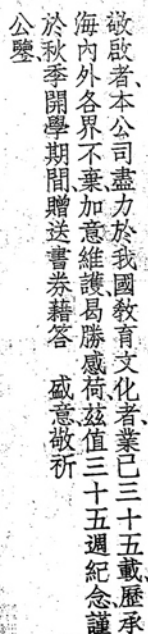 敬啟者、本公司盡力於我國敎育文化者、業已三十五載、歷承
海內外各界不棄、加意維護、曷勝感荷、茲值三十五週紀念、謹
於秋季開學期間、贈送書券藉答　盛意、敬祈
公鑒、